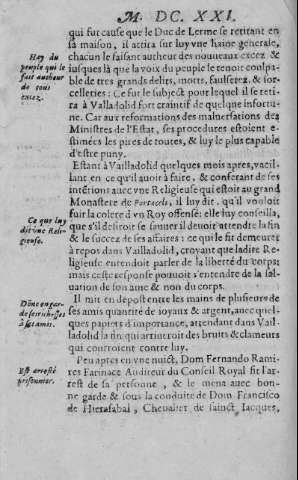 M. DC. XXI.
qui fut cause que le Duc de Lerme se retirant en
sa maison, il attira sur luy vne haine generale,
Hay du peuple qui le fait autheur de tous excez.
chacun le faisant autheur des nouueaux excez &
iusques là que la voix du peuple le tenoit coulpa-
ble de tres grands delits, morts, faulsetez, & for-
celleries: Ce fut le subject pour lequel il se reti-
ra à Valladolid fort craintif de quelque infortu-
ne. Car aux reformations des maluersations des
Ministres de l'Estat, ses procedures estoient e-
stimées les pires de toutes, & luy le plus capable
d'estre puny.
Estant à Vailladolid quelques mois apres, vacil-
lant en ce qu'il auoit à faire, & conferant de ses
intétions auec vne Religieuse qui estoit au grand
Monastere de Portacoels, il luy dit, qu'il vouloit
Ce que luy dit vne Reli-gieuse.
fuir la colere d'vn Roy offensé: elle luy conseilla,
que s'il desiroit se sauuer il deuoit attendre la fin
& le succez de ses affaires: ce qui le fit demeurer
à repos dans Vailladolid, croyant que ladite Re-
ligieuse entendoit parler de la liberté du corps;
mais ceste response pouuoit s'entendre de la sal-
uation de son ame & non du corps.
Dône en gar-de ses richesses à ses amis.
Il mit en depost entre les mains de plusieurs de
ses amis quantité de ioyaux & argent, auec quel-
ques papiers d'importance, attendant dans Vail-
ladolid la fin qu'attireroit des bruits & clameurs
qui couroient contre luy.
Est arresté prisonnier.
Peu apres en vne nuict, Dom Fernando Rami-
res Farinace Auditeur du Conseil Royal fit l'ar-
rest de sa personne, & le mena auec bon-
ne garde & sous la conduite de Dom Francisco
de Hierasabal, Cheualier de sainct Iacques,